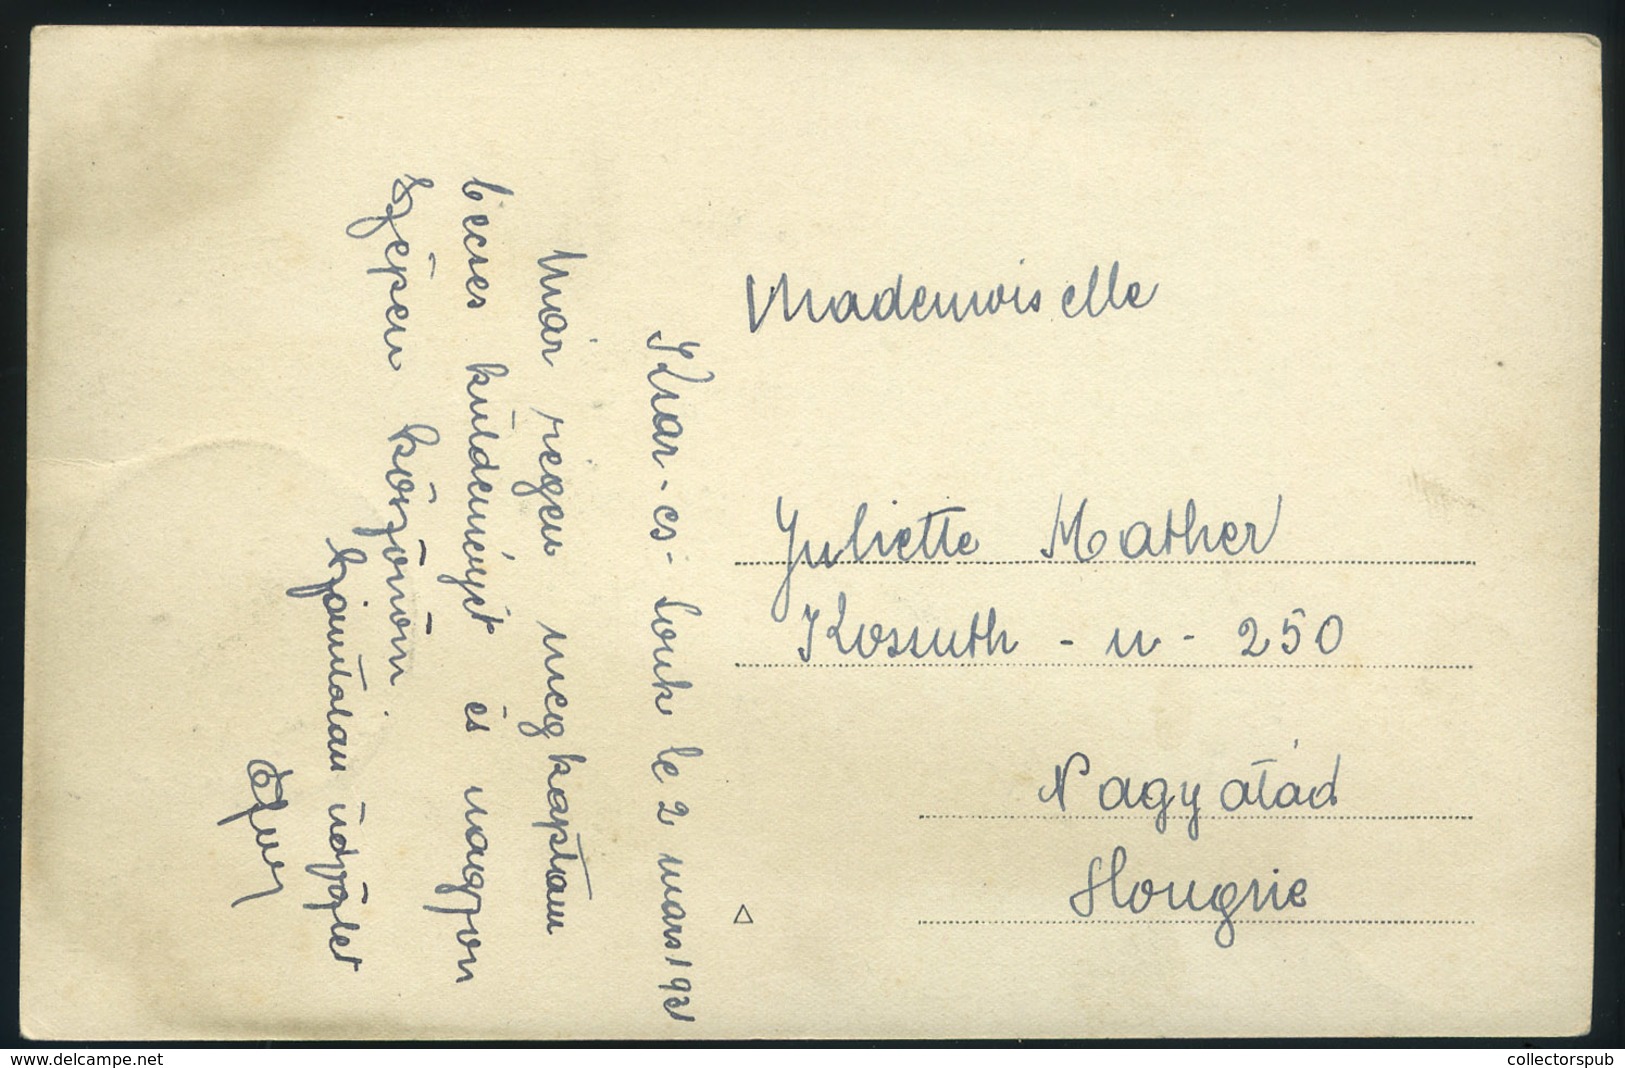 Ksar-es-Souk le 2 mars 1931
Már régen megkaptam
becses küldeményét és nagyon
szépen köszönöm
Számtalan üdvözlet
Mademoiselle
Juliette Mather
Kossuth - u - 250
Nagyatád
Hongrie
www.delcampe.net
collectorspub